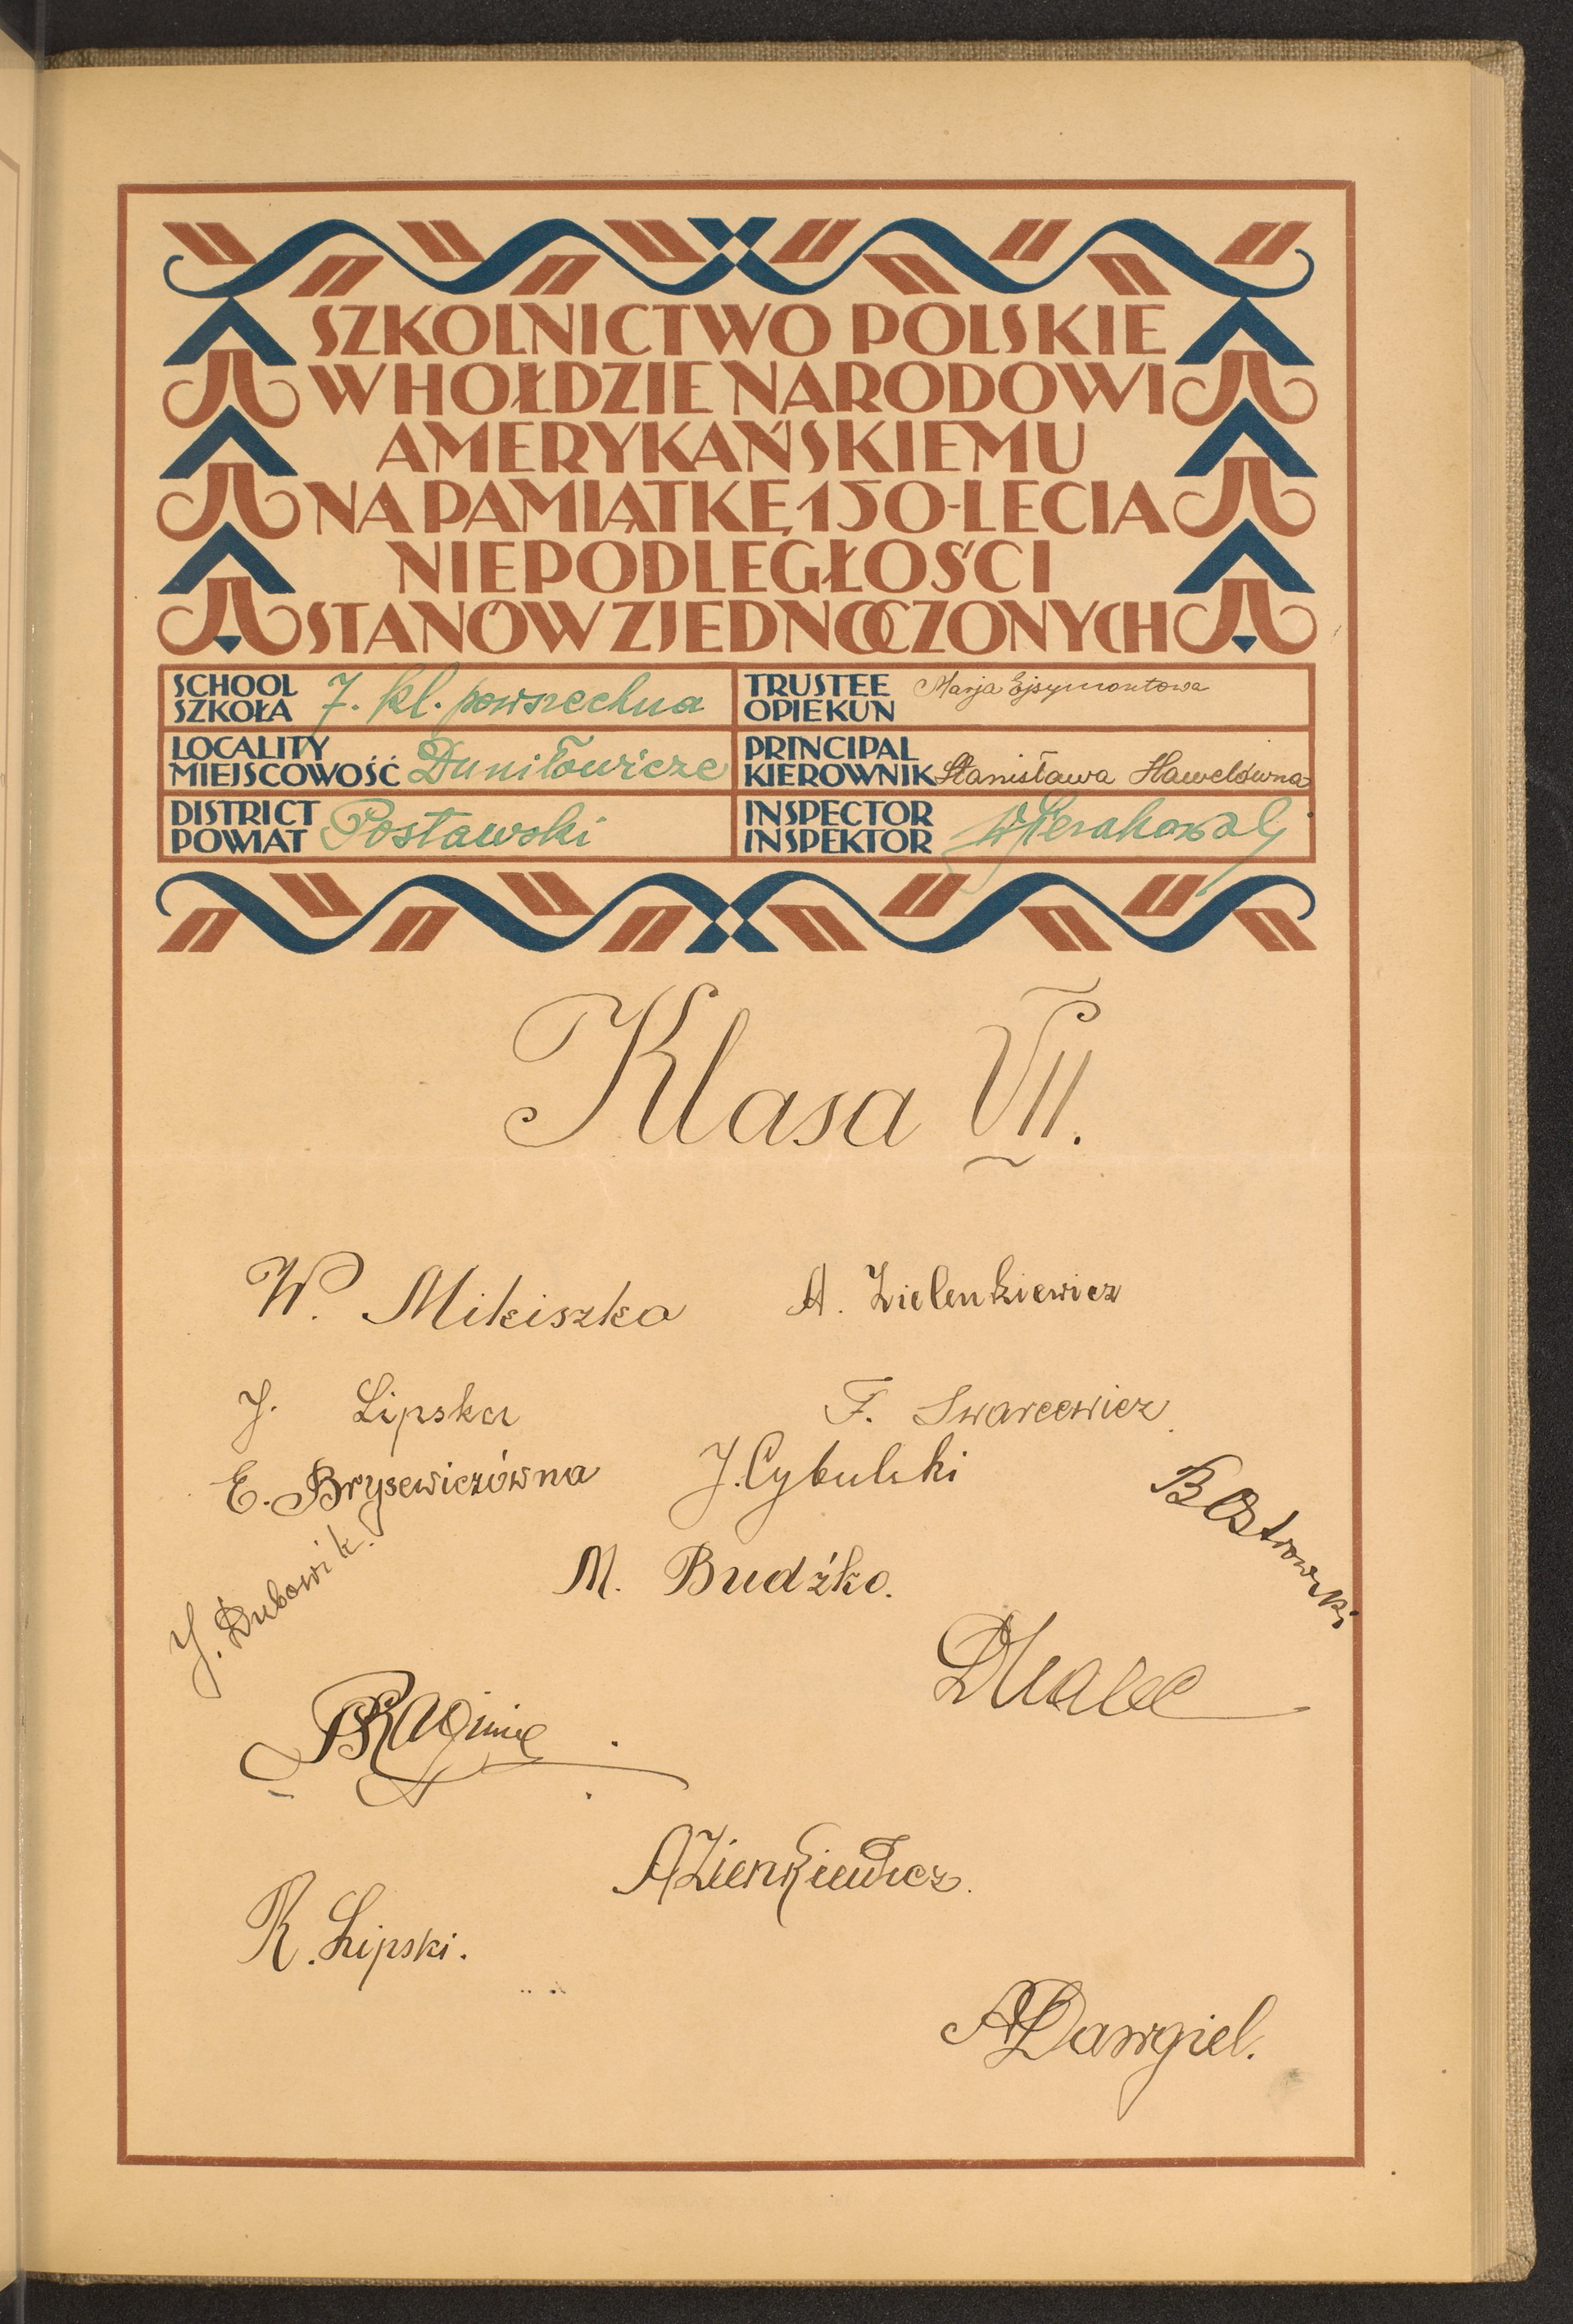 SZKOLNICTWO POLSKIE
W HOŁDZIE NARODOWI
AMERYKAŃSKIEMU
NA PAMIĄTKĘ 150-LECIA
NIEPODLEGŁOŚCI
STANÓW ZJEDNOCZONYCH
SCHOOL
SZKOŁA 7. kl. powszechna
TRUSTEE
OPIEKUN Marja Ejsymontowa
LOCALITY
MIEJSCOWOŚĆ Duniłowicze
PRINCIPAL
KIEROWNIK Stanisława Hawelówna
DISTRICT
POWIAT Postawski
INSPECTOR
INSPEKTOR
Klasa VII.
W. Mikiszko
A. Zielenkiewicz
J. Lipska
F. Swarcewicz
E. Brysewiczówna
J. Cybulski
B Ostrowski
J. Dubowik.
M. Budźko.
A Zienkiewicz.
R. Lipski.
A Dawgiel.